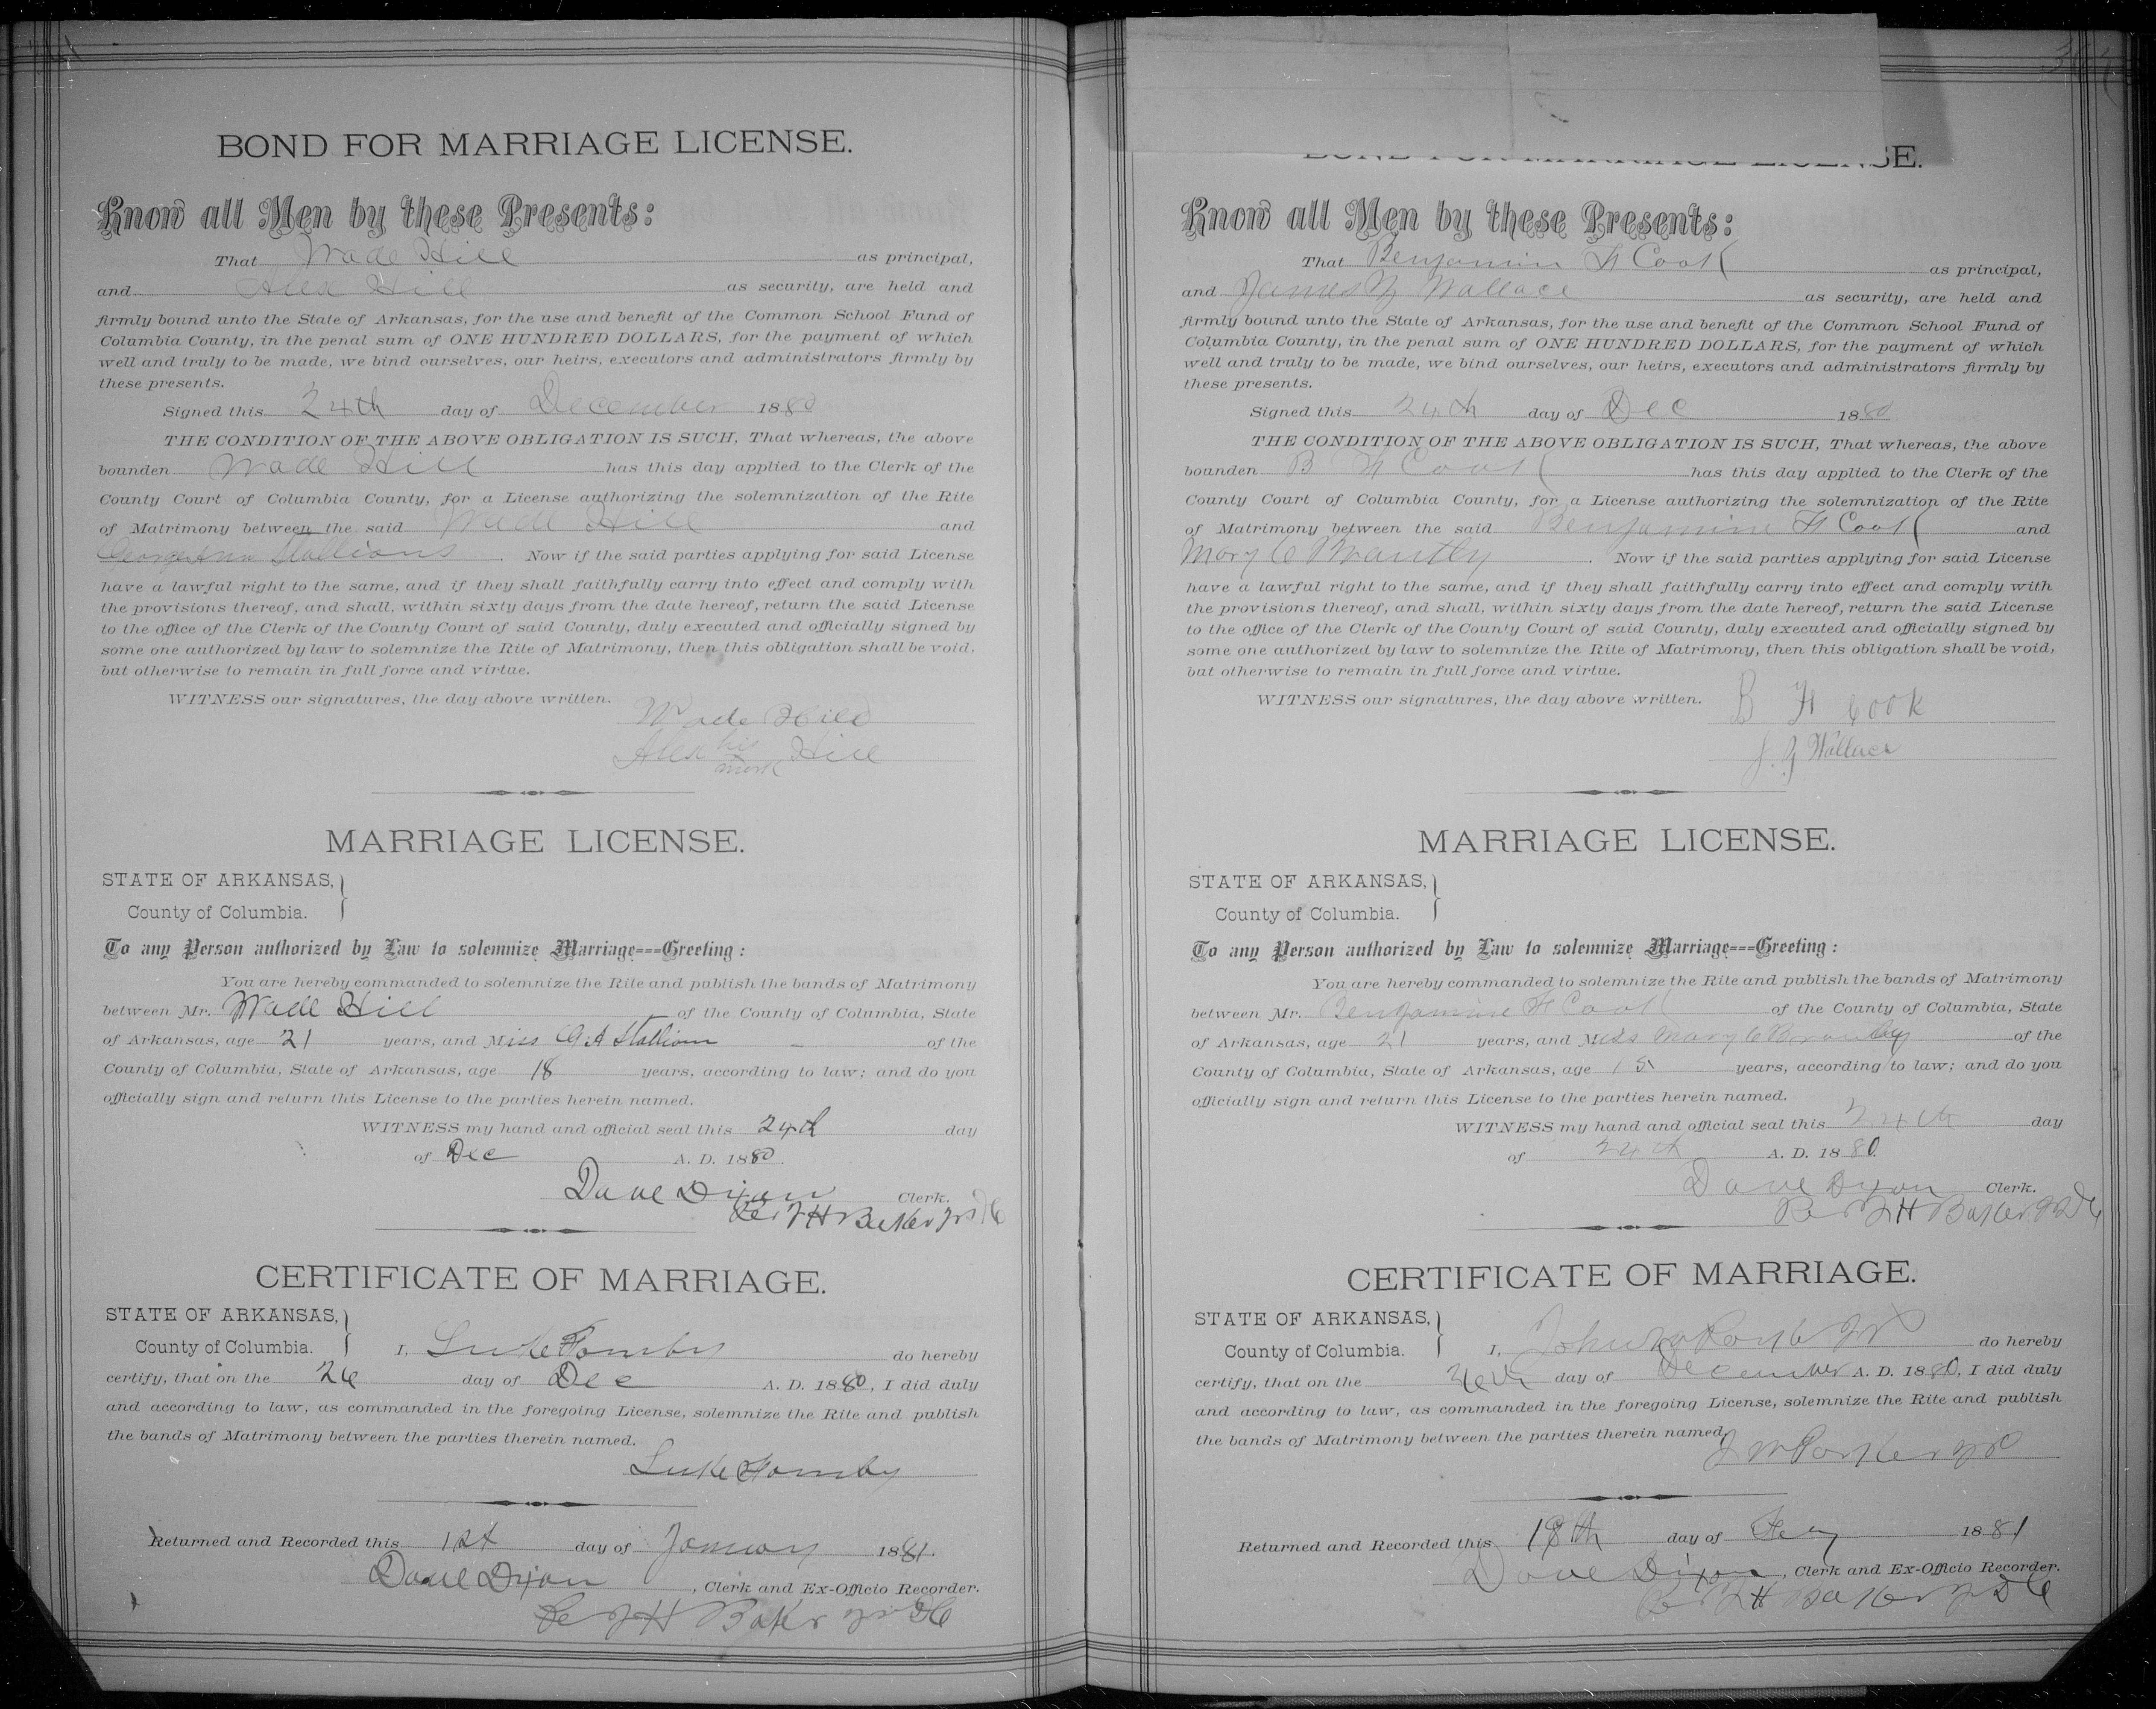 BOND FOR MARRIAGE LICENSE.
Know all Men by these Presents:
That Wade Hill as principal,
and Alex Hill as security, are held and
firmly bound unto the State of Arkansas, for the use and benefit of the Common School Fund of
Columbia County, in the penal sum of ONE HUNDRED DOLLARS, for the payment of which
well and truly to be made, we bind ourselves, our heirs, executors and administrators firmly by
these presents.
Signed this 24th day of December 1880
THE CONDITION OF THE ABOVE OBLIGATION IS SUCH, That whereas, the above
bounden Wade Hill has this day applied to the Clerk of the
County Court of Columbia County, for a License authorizing the solemnization of the Rite
of Matrimony between the said Wade Hill and
Stallions. Now if the said parties applying for said License
have a lawful right to the same, and if they shall faithfully carry into effect and comply with
the provisions thereof, and shall, within sixty days from the date hereof, return the said License
to the office of the Clerk of the County Court of said County, duly executed and officially signed by
some one authorized by law to solemnize the Rite of Matrimony, then this obligation shall be void,
but otherwise to remain in full force and virtue.
WITNESS our signatures, the day above written.
Wade Hill
Alex his Hill
mark
MARRIAGE LICENSE.
STATE OF ARKANSAS,
County of Columbia.
To any Person authorized by Law to solemnize Marriage---Greeting:
You are hereby commanded to solemnize the Rite and publish the bands of Matrimony
between Mr. Wade Hill of the County of Columbia, State
of Arkansas, age 21 years, and Miss G A Stallions of the
County of Columbia, State of Arkansas, age 18 years, according to law; and do you
officially sign and return this License to the parties herein named.
WITNESS my hand and official seal this 24th day
of Dec A. D. 1880.
Dave Dixon Clerk.
Per H Baker Jr DC
CERTIFICATE OF MARRIAGE.
STATE OF ARKANSAS,
County of Columbia.
I, Luke Fomby do hereby
certify, that on the 26 day of Dec A. D. 1880, I did duly
and according to law, as commanded in the foregoing License, solemnize the Rite and publish
the bands of Matrimony between the parties therein named.
Luke Fomby
Returned and Recorded this 1st day of January 1881.
Dave Dixon, Clerk and Ex-Officio Recorder.
Per H Baker Jr DC
BOND FOR MARRIAGE LICENSE.
Know all Men by these Presents:
That Benjamin F Cook as principal,
and James Wallace as security, are held and
firmly bound unto the State of Arkansas, for the use and benefit of the Common School Fund of
Columbia County, in the penal sum of ONE HUNDRED DOLLARS, for the payment of which
well and truly to be made, we bind ourselves, our heirs, executors and administrators firmly by
these presents.
Signed this 24th day of Dec 1880
THE CONDITION OF THE ABOVE OBLIGATION IS SUCH, That whereas, the above
bounden B F Cook has this day applied to the Clerk of the
County Court of Columbia County, for a License authorizing the solemnization of the Rite
of Matrimony between the said Benjamine F Cook and
Mary C Brantly. Now if the said parties applying for said License
have a lawful right to the same, and if they shall faithfully carry into effect and comply with
the provisions thereof, and shall, within sixty days from the date hereof, return the said License
to the office of the Clerk of the County Court of said County, duly executed and officially signed by
some one authorized by law to solemnize the Rite of Matrimony, then this obligation shall be void,
but otherwise to remain in full force and virtue.
WITNESS our signatures, the day above written.
B F Cook
J. Wallace
MARRIAGE LICENSE.
STATE OF ARKANSAS,
County of Columbia.
To any Person authorized by Law to solemnize Marriage---Greeting:
You are hereby commanded to solemnize the Rite and publish the bands of Matrimony
between Mr. Benjamine F Cook of the County of Columbia, State
of Arkansas, age 21 years, and Miss Mary C Brantly of the
County of Columbia, State of Arkansas, age 15 years, according to law; and do you
officially sign and return this License to the parties herein named.
WITNESS my hand and official seal this 24th day
of 24th A. D. 1880.
Dave Dixon Clerk.
Per H Baker Jr DC
CERTIFICATE OF MARRIAGE.
STATE OF ARKANSAS,
County of Columbia.
I, John do hereby
certify, that on the 26th day of December A. D. 1880, I did duly
and according to law, as commanded in the foregoing License, solemnize the Rite and publish
the bands of Matrimony between the parties therein named.
J W
Returned and Recorded this 18th day of 1881
Dave Dixon, Clerk and Ex-Officio Recorder.
Per H Baker Jr DC